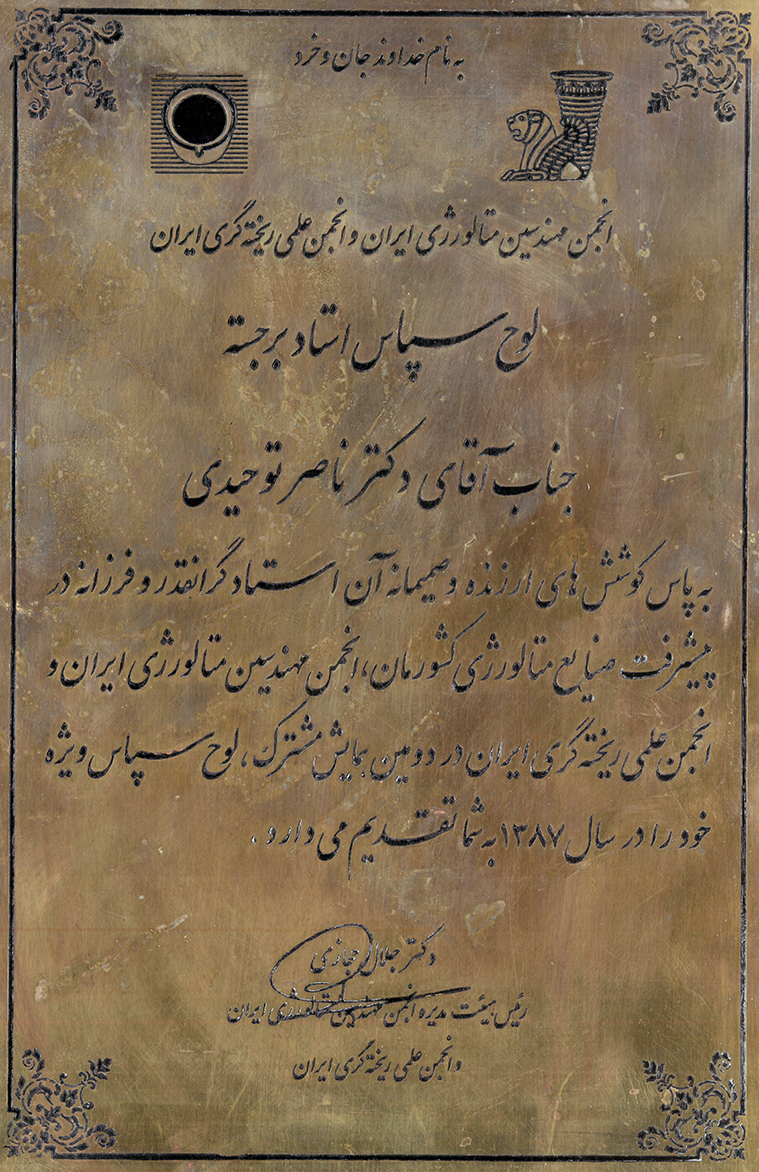 به نام خداوند جان و خرد
انجمن مهندسین متالورژی ایران و انجمن علمی ریخته گری ایران
لوح سپاس استاد برجسته
جناب آقای دکتر ناصر توحیدی
به پاس کوشش های ارزنده و صمیمانه آن استاد گرانقدر و فرزانه در
پیشرفت صنایع متالورژی کشورمان، انجمن مهندسین متالورژی ایران و
انجمن علمی ریخته گری ایران در دومین همایش مشترک، لوح سپاس ویژه
خود را در سال ۱۳۸۷ به شما تقدیم می دارد.
دکتر جلال حجازی
رئیس هیئت مدیره انجمن مهندسین متالورژی ایران
و انجمن علمی ریخته گری ایران